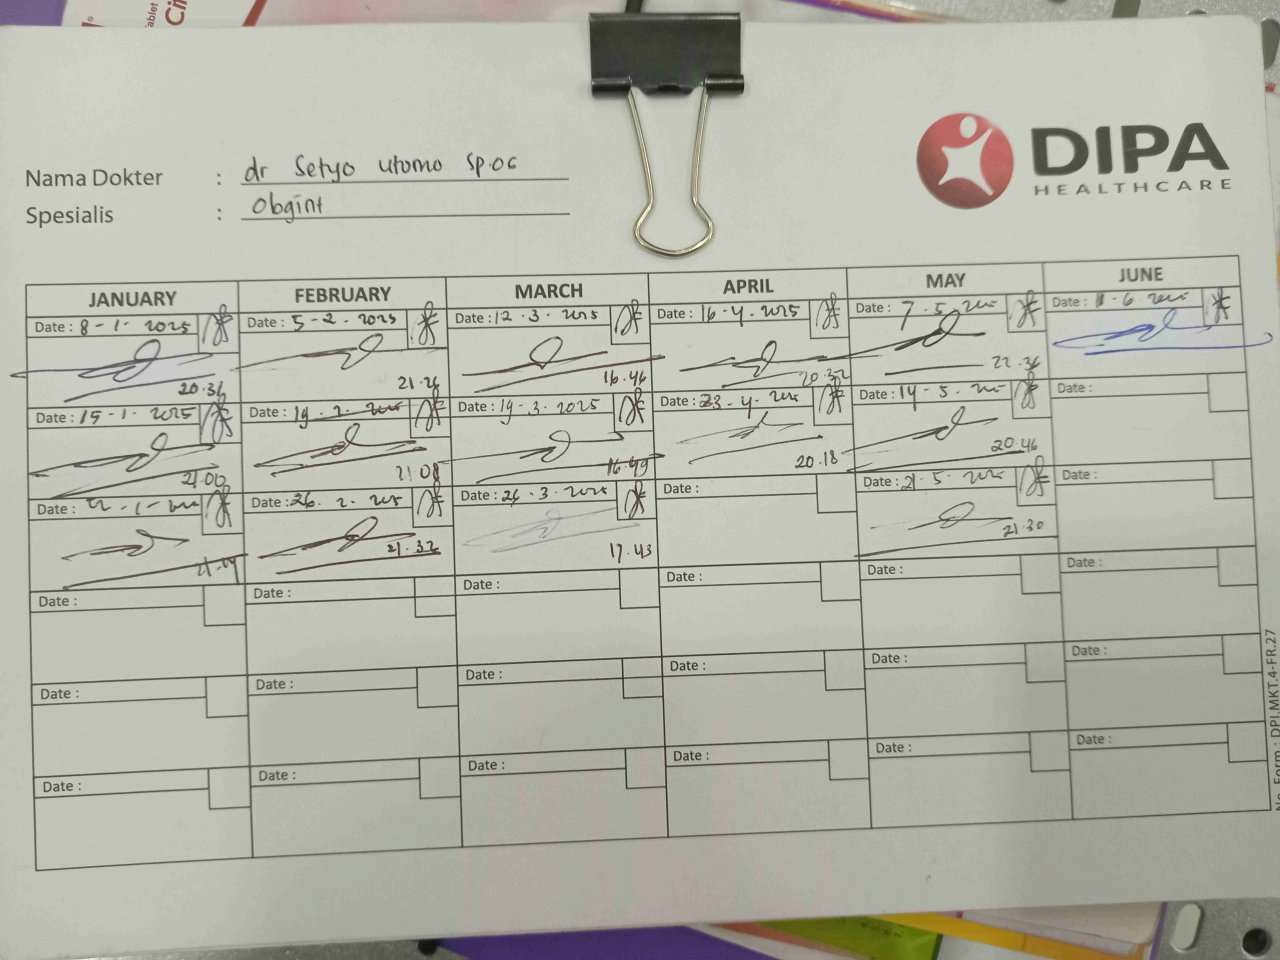 Tablet
DIPA
HEALTHCARE
Nama Dokter : dr Setyo Utomo Sp.OG
Spesialis : Obgint
JANUARY FEBRUARY MARCH APRIL MAY JUNE
Date : 8-1-2025 Date : 5-2-2025 Date : 12.3.2025 Date : 16-4-2025 Date : 7.5.2025 Date : 11-6-2025
20.36 21.26 16.46 20.32 22.36
Date : 15-1-2025 Date : 19-2-2025 Date : 19-3-2025 Date : 23-4-2025 Date : 14-5-2025 Date :
21.00 21.08 16.49 20.18 20.46
Date : 22-1-2025 Date : 26.2-2025 Date : 26.3-2025 Date : Date : 21-5-2025 Date :
21.09 21.32 17.43 21.30
Date : Date : Date : Date : Date : Date :
Date : Date : Date : Date : Date : Date :
Date : Date : Date : Date : Date : Date :
No. Form : DPI.MKT.4-FR.27